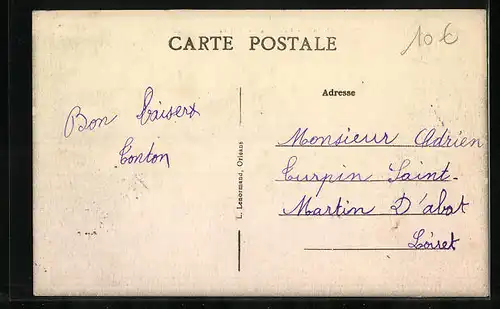 CARTE POSTALE
10 €
Bon Baisers
Tonton
L. Lenormand, Orléans
Adresse
Monsieur Adrien
Turpin Saint-
Martin D'abat
Loiret